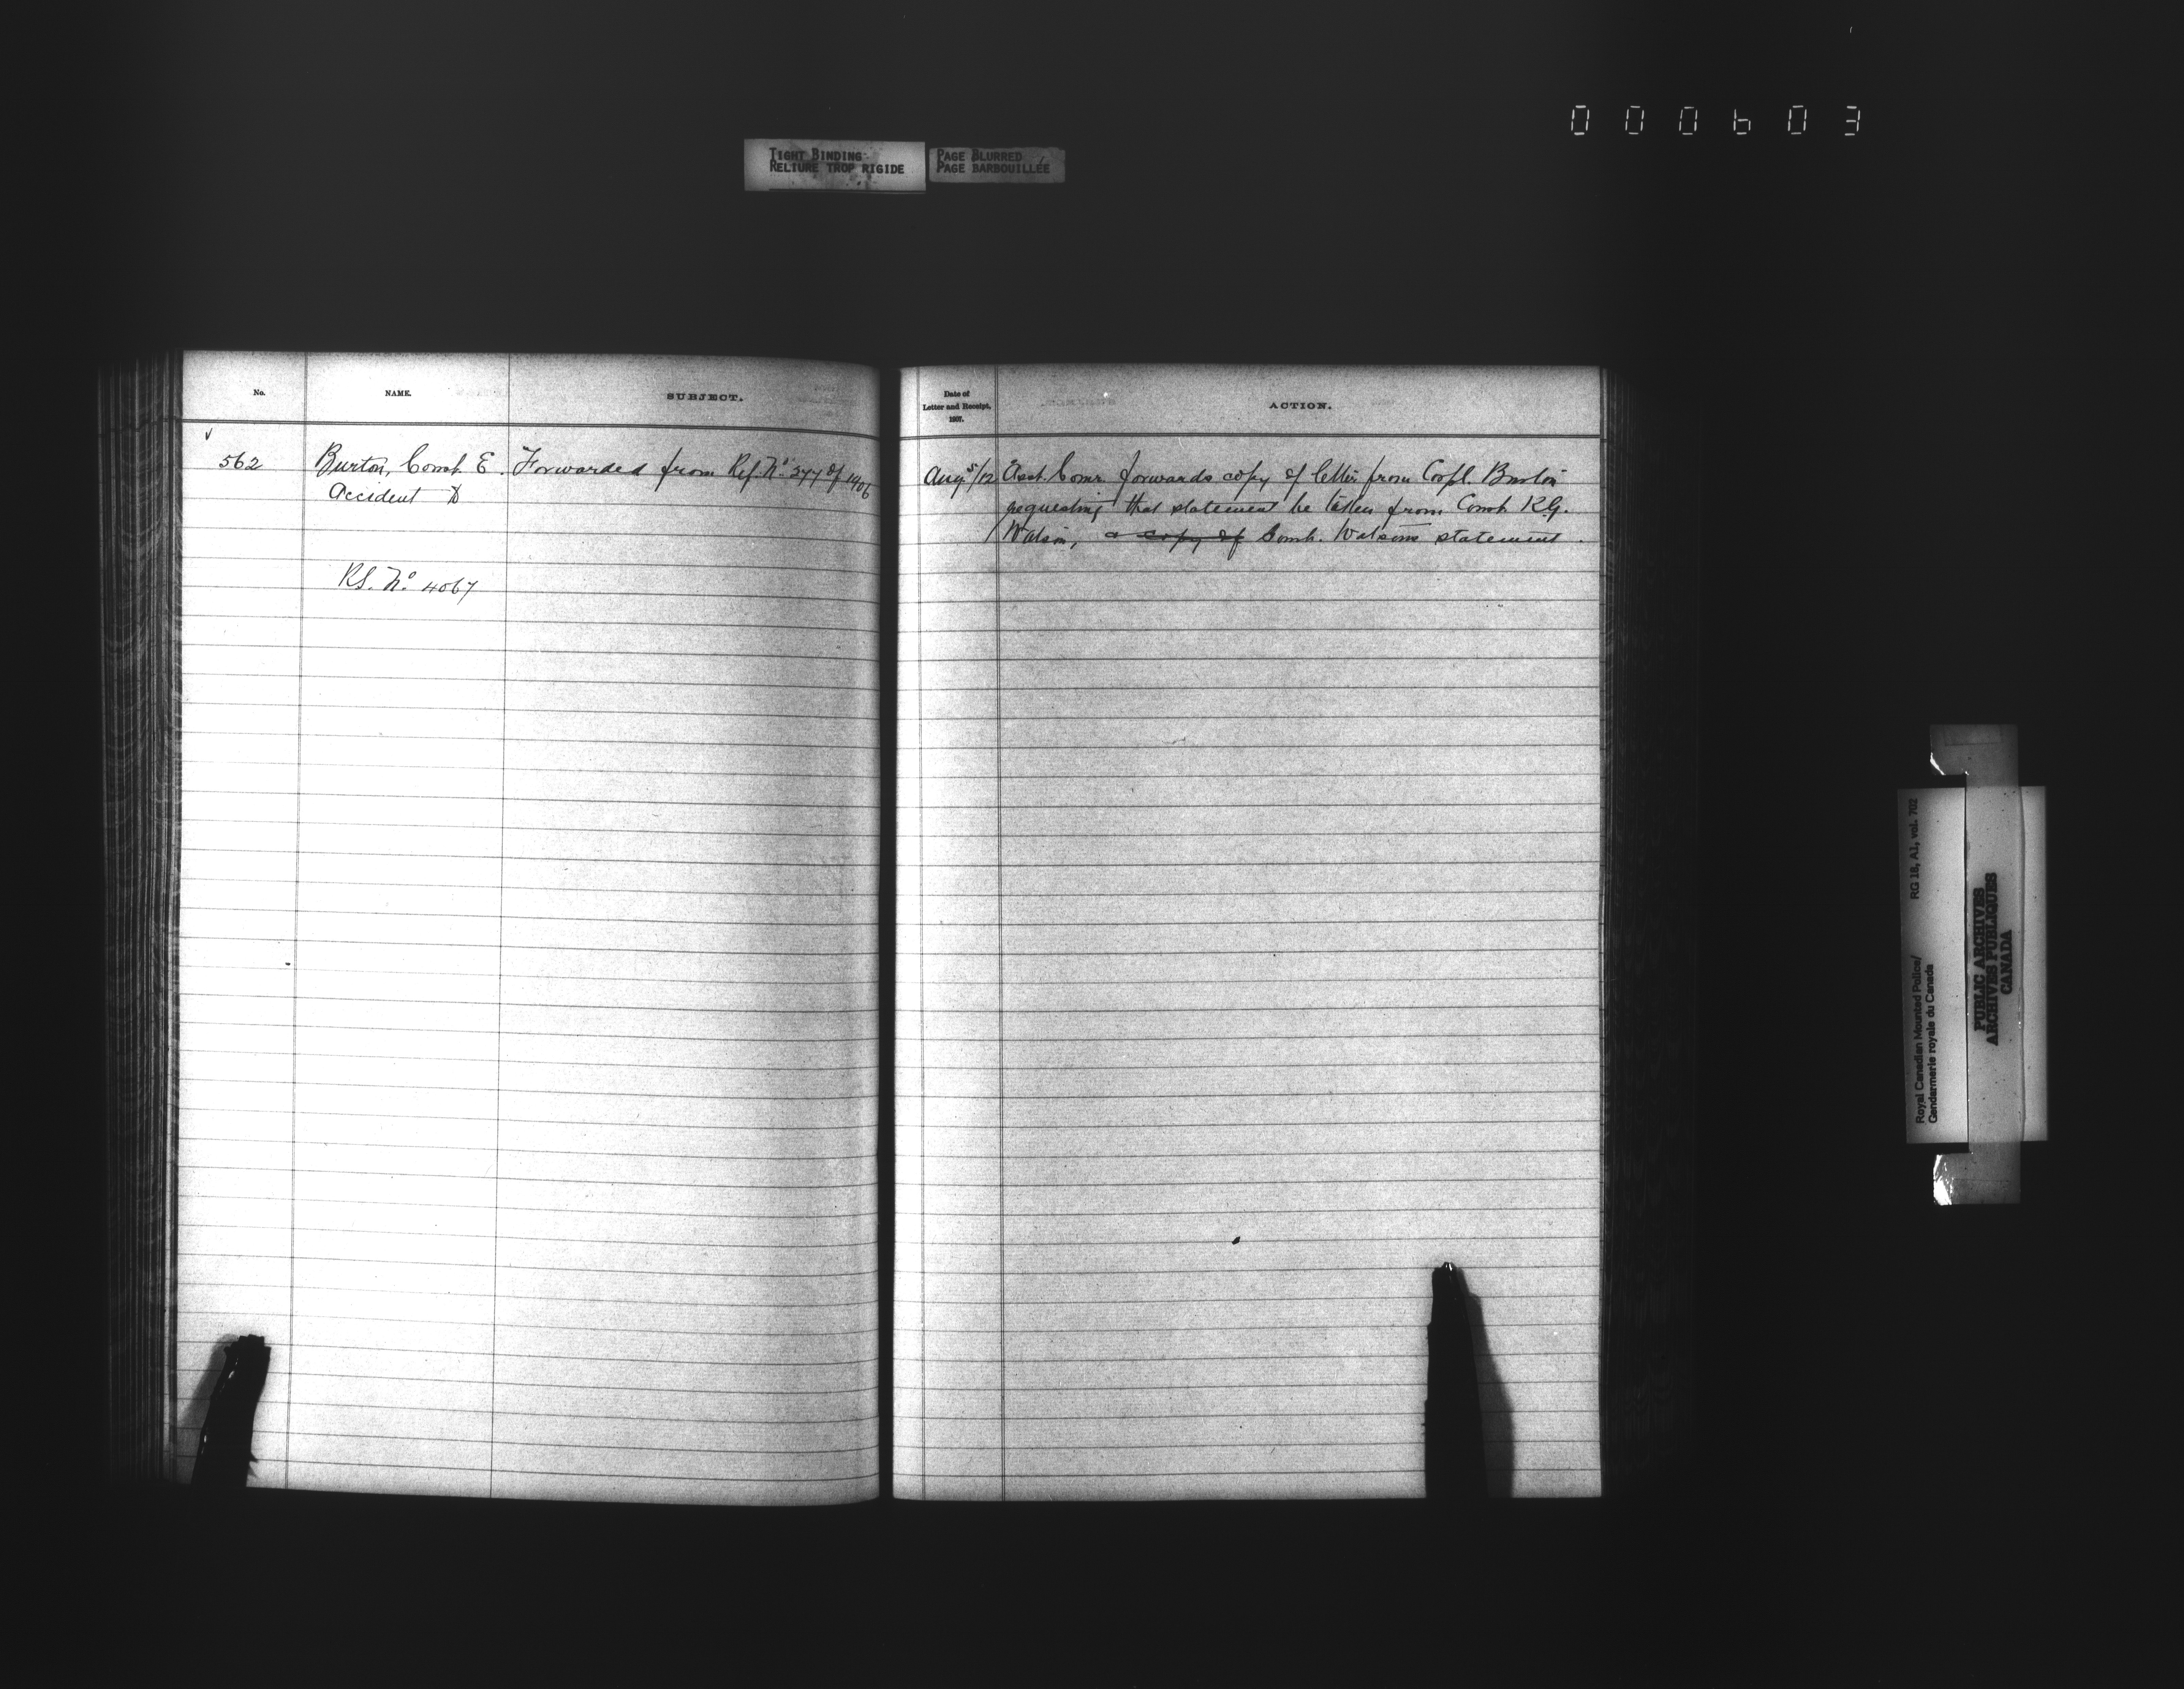 000603
TIGHT BINDING
RELIURE TROP RIGIDE
PAGE BLURRED
PAGE BARBOUILLÉE
No.
NAME.
SUBJECT.
562
Burton, Const. E.
Forwarded from Ref. No. 377 of 1906
Accident to
RS. No. 4067
Date of
Letter and Receipt,
1907.
ACTION.
Aug. 5/12
Asst. Comr. forwards copy of letter from Corpl. Burton
requesting that statement be taken from Const. R.G.
Watson, a copy of Const. Watsons statement.
RG 18, A1, vol. 702
Royal Canadian Mounted Police/
Gendarmerie royale du Canada
PUBLIC ARCHIVES
ARCHIVES PUBLIQUES
CANADA